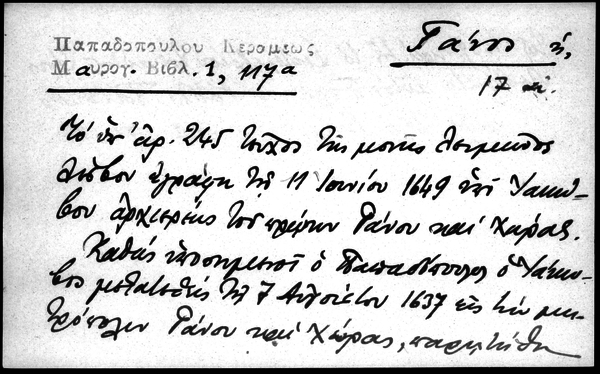 Παπαδοπουλου Κεραμεως
Μαυρογ. Βιβλ. 1, 117α
Γάνος ἡ,
17 αἰ.
Τὸ ὑπ' ἀρ. 245 τεῦχος τῆς μονῆς Λειμῶνος
Λέσβου ἐγράφη τῇ 11 Ἰουνίου 1649 ὑπὸ Ἰακώ-
βου ἀρχιερέως τοῦ πρώην Γάνου καὶ Χώρας.
Καθὼς ὑποσημειοῖ ὁ Παπαδόπουλος ὁ Ἰάκω-
βος μετατεθεὶς τῇ 7 Αὐγούστου 1637 εἰς τὴν μη-
τρόπολιν Γάνου καὶ Χώρας, παρῃτήθη